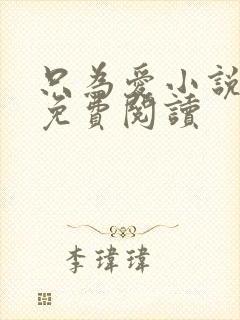 只為愛小說
免費閱讀
李瑋瑋